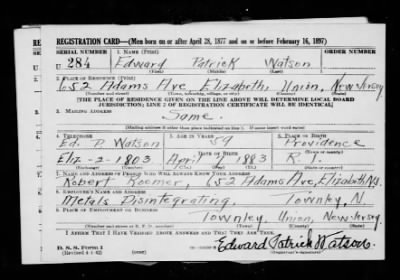 REGISTRATION CARD—(Men born on or after April 28, 1877 and on or before February 16, 1897)
SERIAL NUMBER 1. NAME (Print) ORDER NUMBER
U 284 Edward Patrick Watson
(First) (Middle) (Last)
2. PLACE OF RESIDENCE (Print)
652 Adams Ave Elizabeth Union, New Jersey
(Number and street) (Town, township, village, or city) (County) (State)
[THE PLACE OF RESIDENCE GIVEN ON THE LINE ABOVE WILL DETERMINE LOCAL BOARD
JURISDICTION; LINE 2 OF REGISTRATION CERTIFICATE WILL BE IDENTICAL]
3. MAILING ADDRESS
Same.
[Mailing address if other than place indicated on line 2. If same insert word same]
4. TELEPHONE 5. AGE IN YEARS 6. PLACE OF BIRTH
Ed. P. Watson 59 Providence
DATE OF BIRTH
Eliz-2-1803 April 1883 R. I.
7. NAME AND ADDRESS OF PERSON WHO WILL ALWAYS KNOW YOUR ADDRESS
Robert Roemer, 652 Adams Ave, Elizabeth N.J.
8. EMPLOYER'S NAME AND ADDRESS
Metals Disintegrating, Townley, N.
9. PLACE OF EMPLOYMENT OR BUSINESS
Townley, Union, New Jersey.
I AFFIRM THAT I HAVE VERIFIED ABOVE ANSWERS AND THAT THEY ARE TRUE.
D. S. S. Form 1
Edward Patrick Watson.